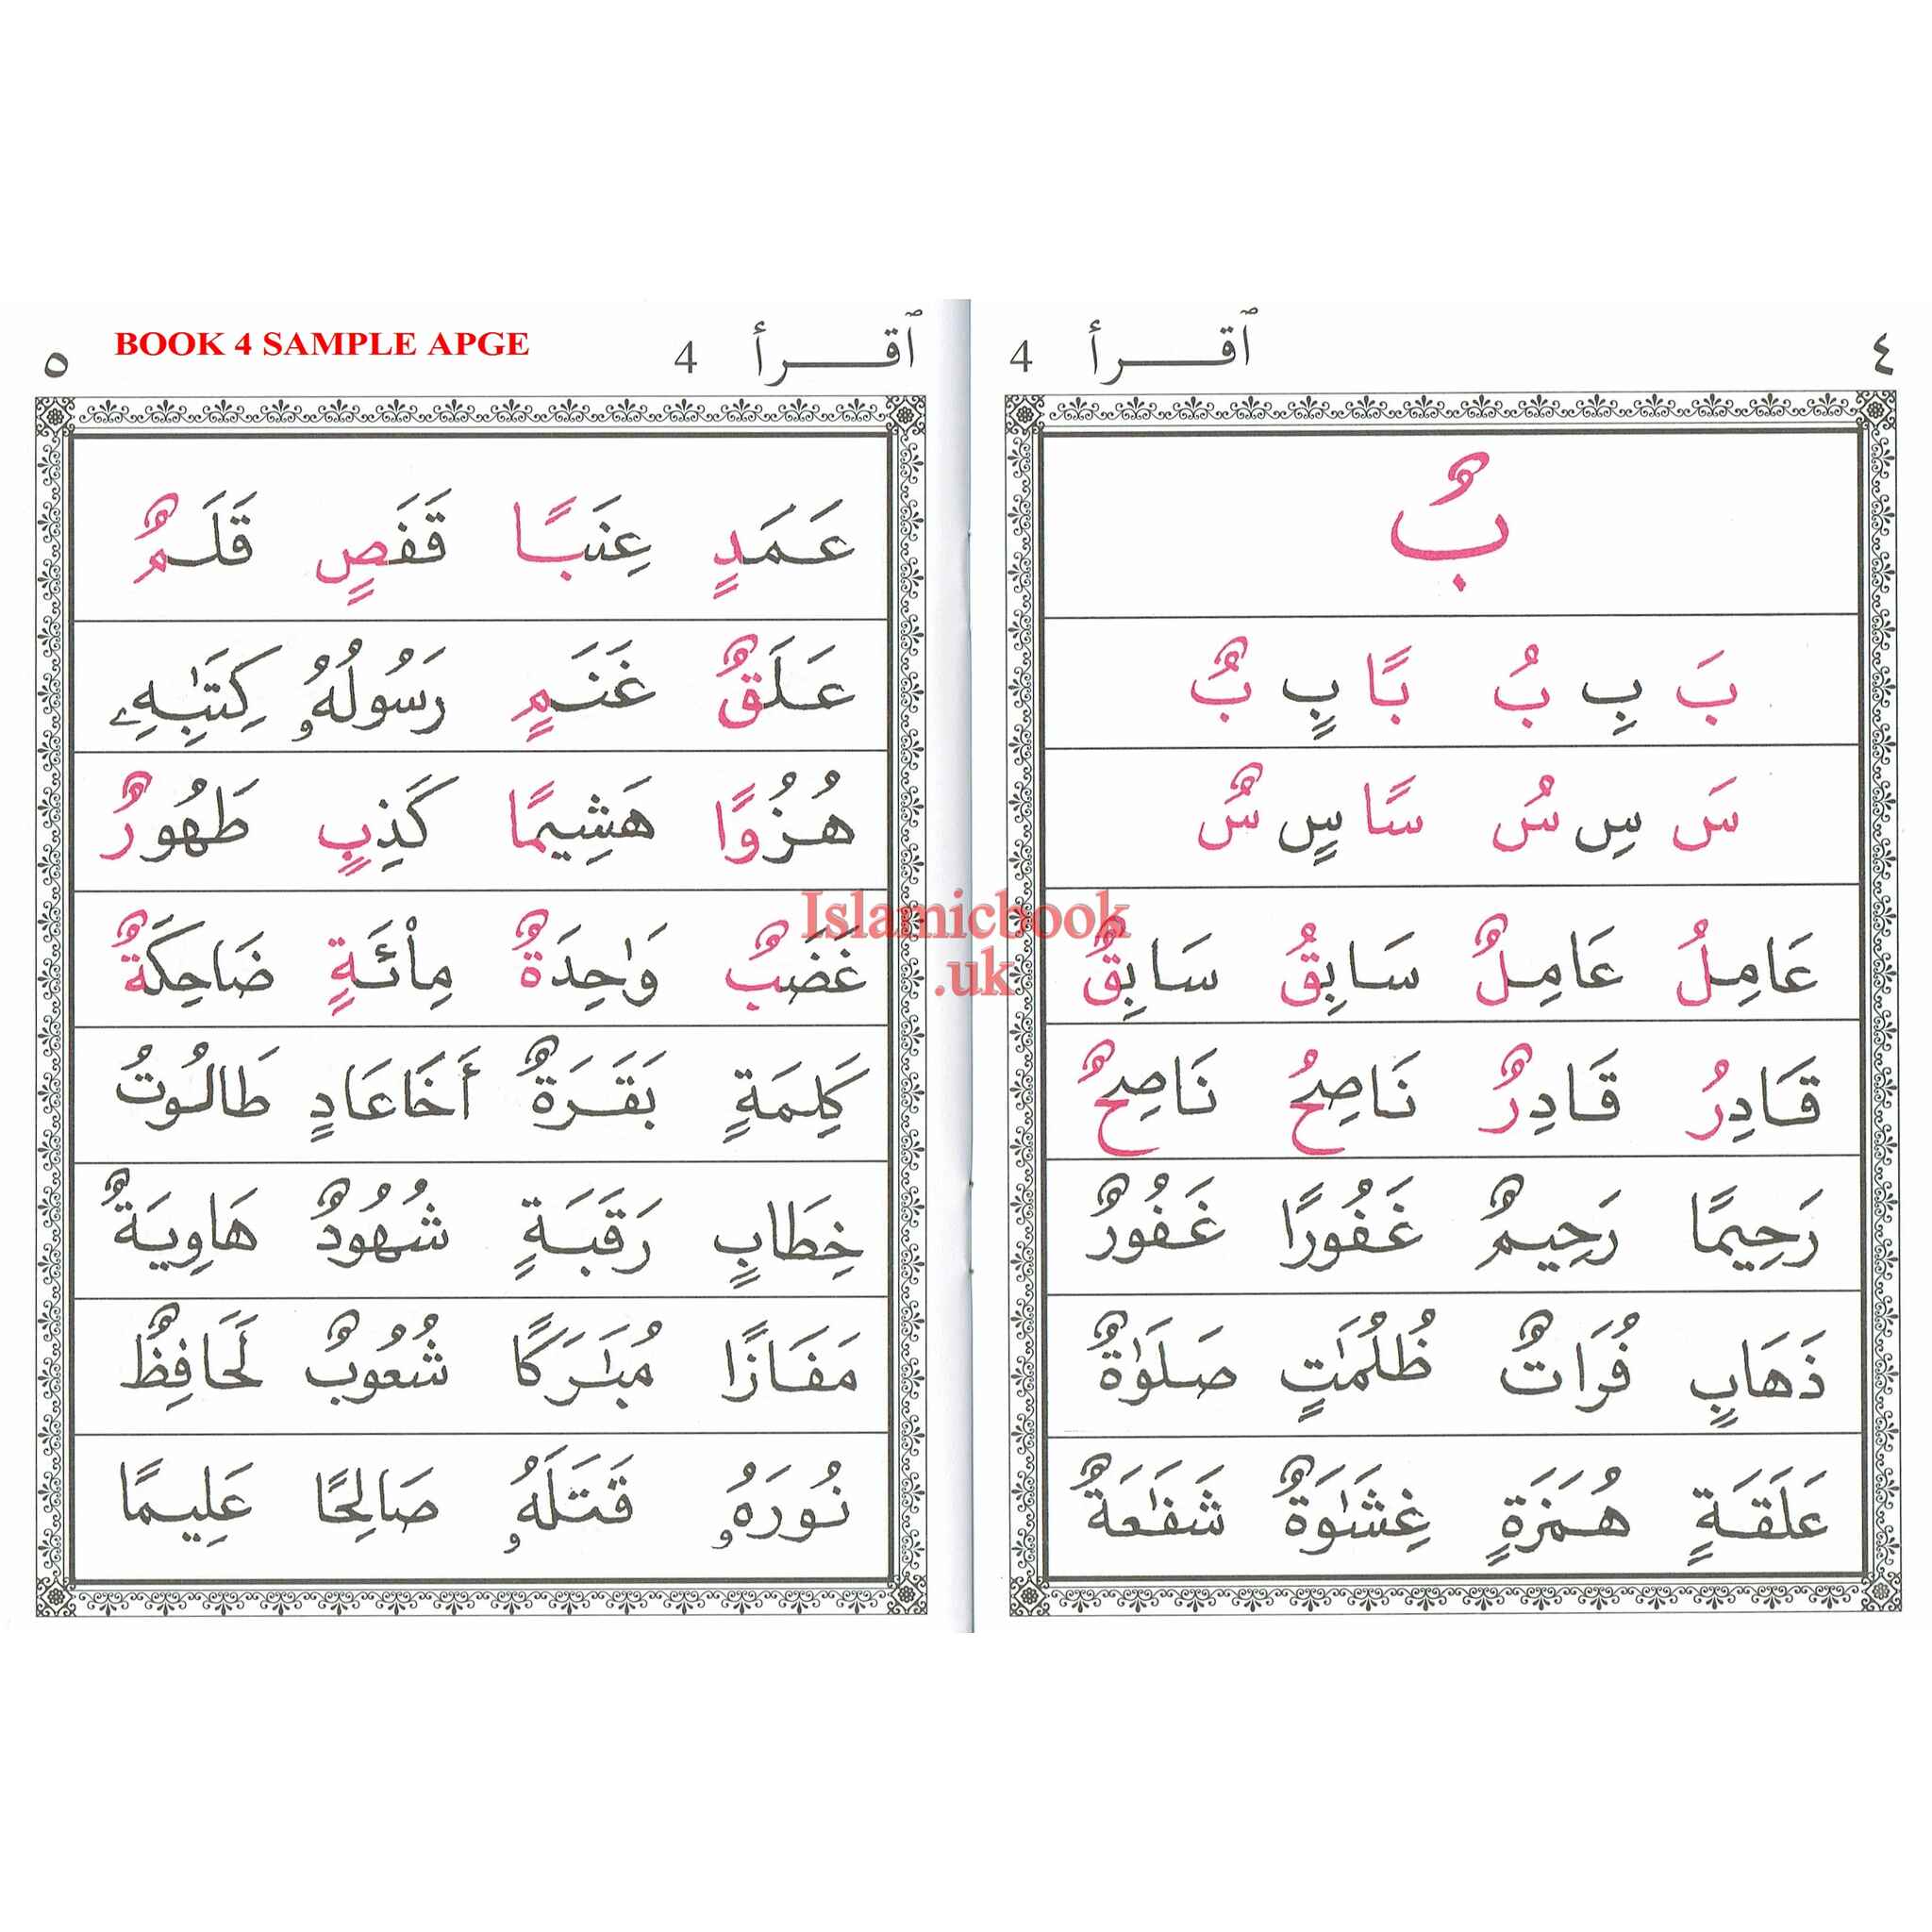 ٤ ٱقرأ 4
بٌ
بَ بِ بُ بًا بٍ بٌ
سَ سِ سُ سًا سٍ سٌ
عَامِلُ عَامِلٌ سَابِقُ سَابِقٌ
قَادِرُ قَادِرٌ نَاصِحُ نَاصِحٌ
رَحِيمًا رَحِيمٌ غَفُورًا غَفُورٌ
ذَهَابٍ فُرَاتٌ ظُلُمَٰتٍ صَلَوَٰةٌ
عَلَقَةٍ هُمَزَةٍ غِشَٰوَةٌ شَفَٰعَةٌ
ٱقرأ 4 BOOK 4 SAMPLE APGE ٥
عَمَدٍ عِنَبًا قَفَصٍ قَلَمٌ
عَلَقٌ غَنَمٍ رَسُولُهُۥ كِتَٰبِهِۦ
هُزُوًا هَشِيمًا كَذِبٍ طَهُورٌ
غَضَبٌ وَٰحِدَةٌ مِا۟ئَةٍ ضَاحِكَةٌ
كَلِمَةٍ بَقَرَةٌ أَخَاعَادٍ طَالُوتُ
خِطَابٍ رَقَبَةٍ شُهُودٌ هَاوِيَةٌ
مَفَازًا مُبَٰرَكًا شُعُوبٌ لَحَافِظٌ
نُورَهُۥ قَتَلَهُۥ صَالِحًا عَلِيمًا
Islamicbook
.uk